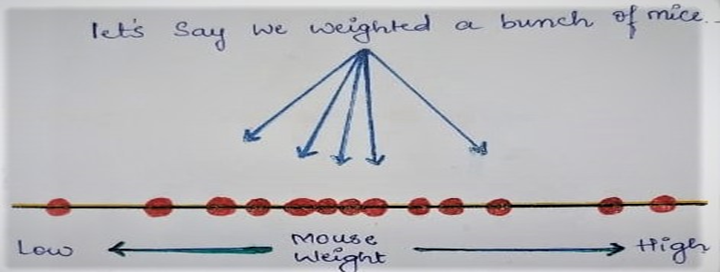 let's Say we weighted a bunch of mice..
Low Mouse Weight High